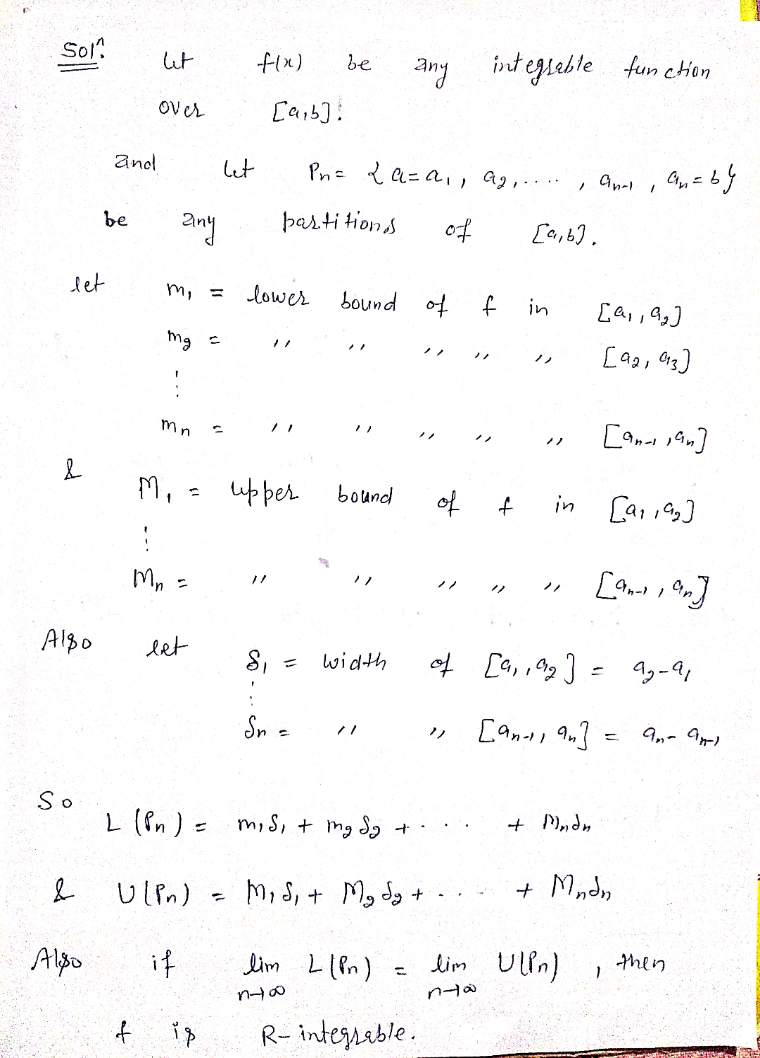 Solⁿ. let f(x) be any integrable function
over [a,b].
and let Pn = {a=a₁, a₂,....., aₙ₋₁, aₙ=b}
be any partitions of [a,b].
let m₁ = lower bound of f in [a₁,a₂]
m₂ = ,, ,, ,, ,, ,, [a₂, a₃]
⋮
mₙ = ,, ,, ,, ,, ,, [aₙ₋₁,aₙ]
& M₁ = upper bound of f in [a₁,a₂]
⋮
Mₙ = ,, ,, ,, ,, ,, [aₙ₋₁, aₙ]
Also let δ₁ = width of [a₁,a₂] = a₂-a₁
⋮
δₙ = ,, ,, [aₙ₋₁, aₙ] = aₙ- aₙ₋₁
So
L(Pₙ) = m₁δ₁ + m₂δ₂ + . . . + mₙδₙ
& U(Pₙ) = M₁δ₁ + M₂δ₂ + . . . . + Mₙδₙ
Also if lim n→∞ L(Pₙ) = lim n→∞ U(Pₙ) , then
f is R-integrable.